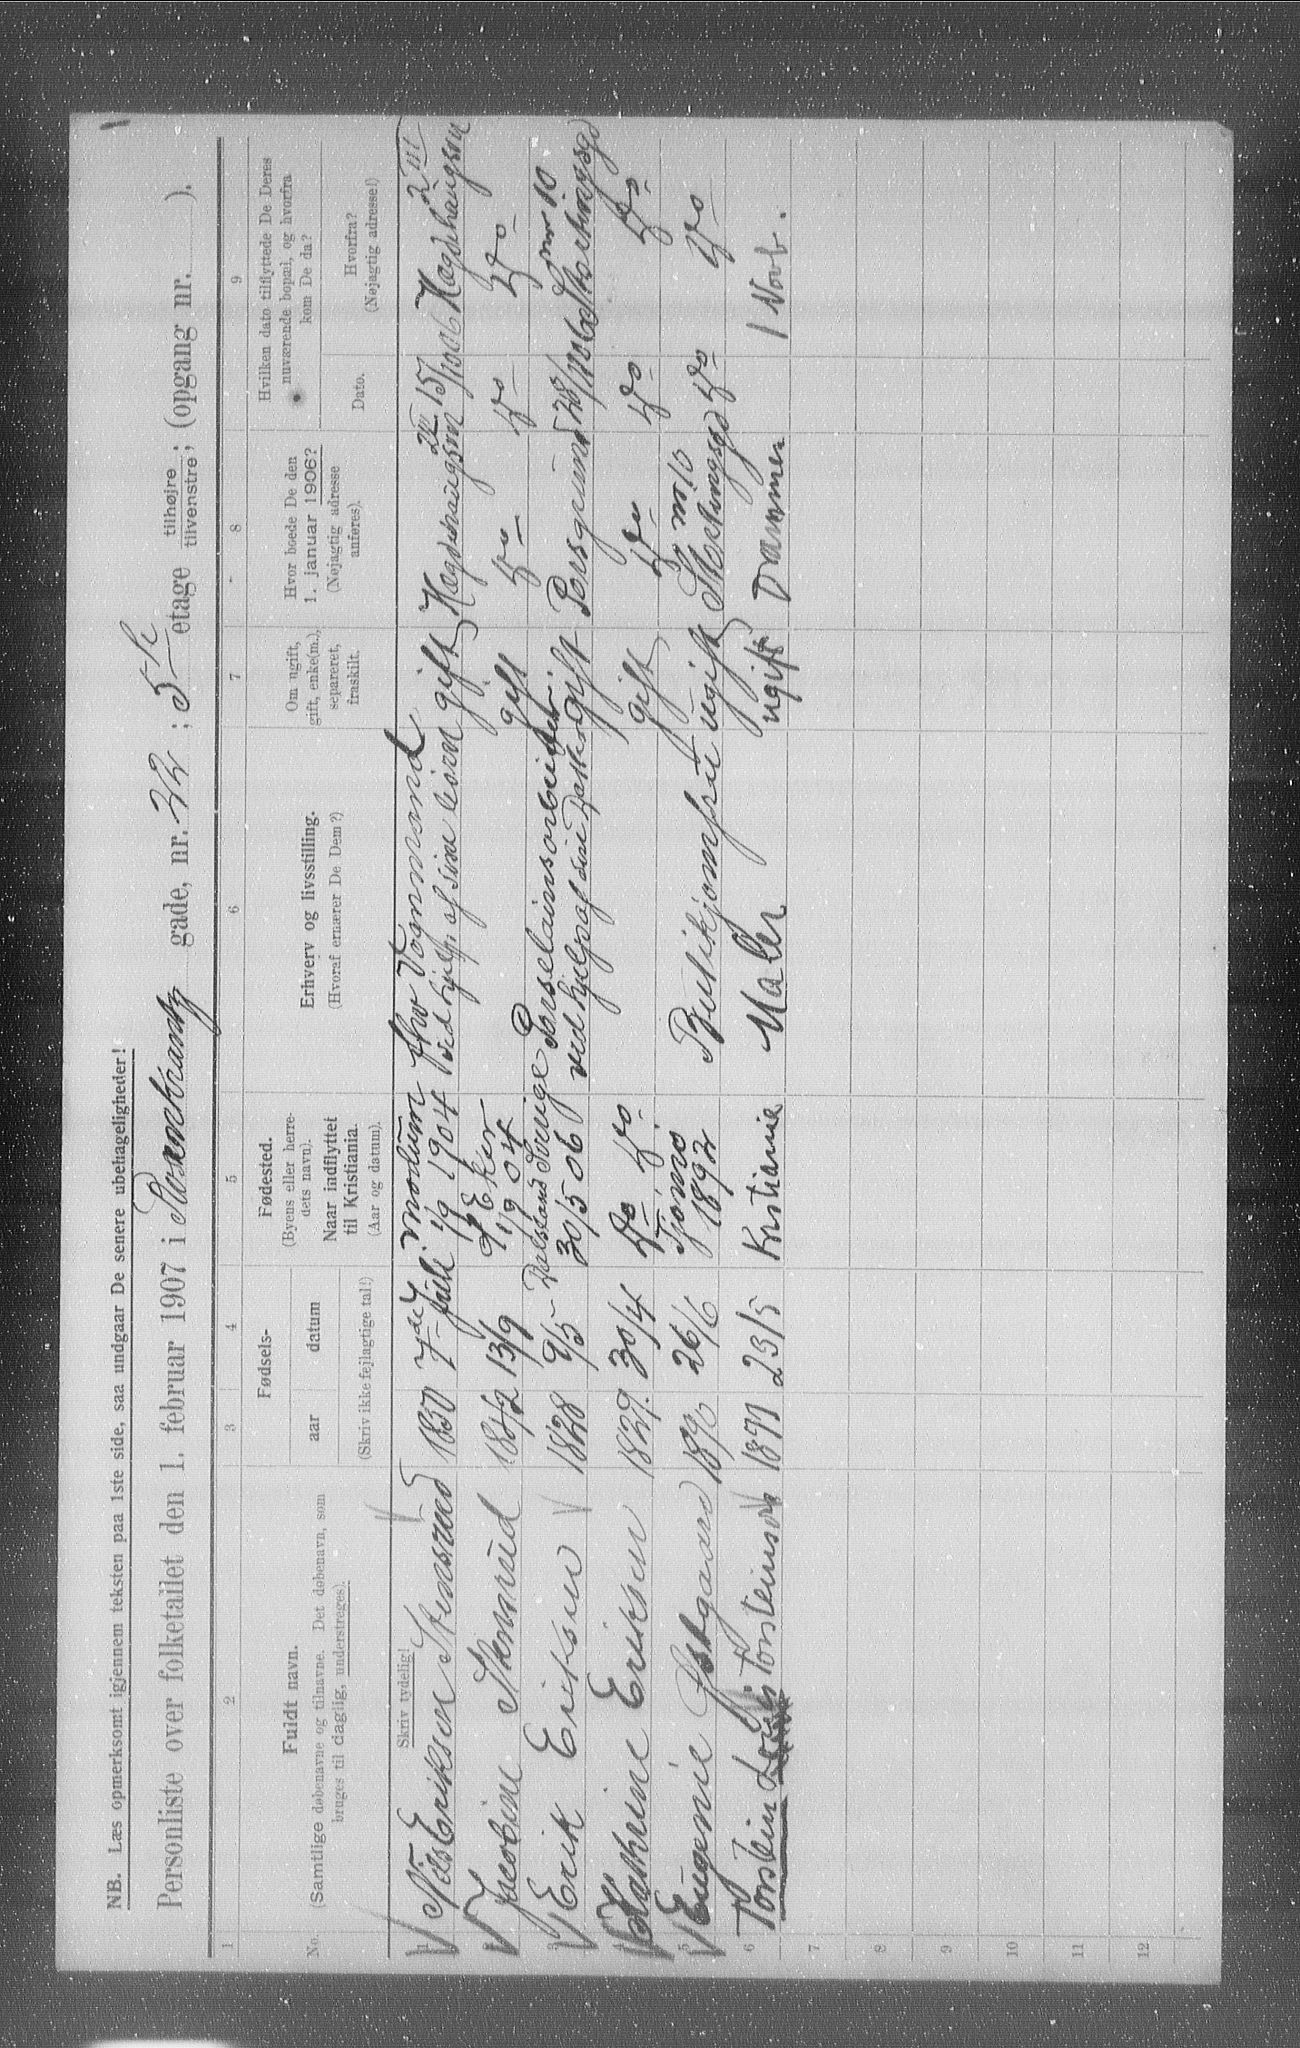 NB. Læs opmerksomt igjennem teksten paa 1ste side, saa undgaar De senere ubehageligheder!
Personliste over folketallet den 1. februar 1907 i Rosenkrantz gade, nr. 22 ; 5te etage tilhøjre tilvenstre ; (opgang nr. ).
1 2 3 4 5 6 7 8 9
No.
Fuldt navn.
(Samtlige døbenavne og tilnavne. Det døbenavn, som
bruges til daglig, understreges).
Skriv tydelig!
Fødsels-
aar datum
(Skriv ikke fejlagtige tal!)
Fødested.
(Byens eller herre-
dets navn).
Naar indflyttet
til Kristiania.
(Aar og datum).
Erhverv og livsstilling.
(Hvoraf ernærer De Dem?)
Om ugift,
gift, enke(m.),
separeret,
fraskilt.
Hvor boede De den
1. januar 1906?
(Nøjagtig adresse
anføres).
Hvilken dato tilflyttede De Deres
nuværende bopæl, og hvorfra
kom De da?
Dato.
Hvorfra?
(Nøjagtig adresse!)
1 Nils Eriksen Stensrud 1850 7de Juli Modum 1/9 1904 fhv Vognmand ved hjelp af sine børn gift Hægdehaugsvn 2 III 15/10 06 Hægdehaugsvn 2 III
2 Jacobine Stensrud 1852 13/9 Eker 1/9 04 gift Do Do Do
3 Erik Eriksen 1828 9/5 Dalsland Sverige 30/5 06 Porselainsarbeider ved hjelp af sin Datter gift Porsgrund 28/10 06 Stortingsgd nr 10
4 Kathrine Eriksen 1829. 30/4 Do Do gift Do Do Do
5 Eugenie Østgaard 1890 26/6 Tjømø 1892 Butikjomfru ugift Stortingsgd nr 10 Do Do
6 Torstein Torsteinsen 1877 23/5 Kristiania Maler ugift Drammen 1 Novb.
7
8
9
10
11
12